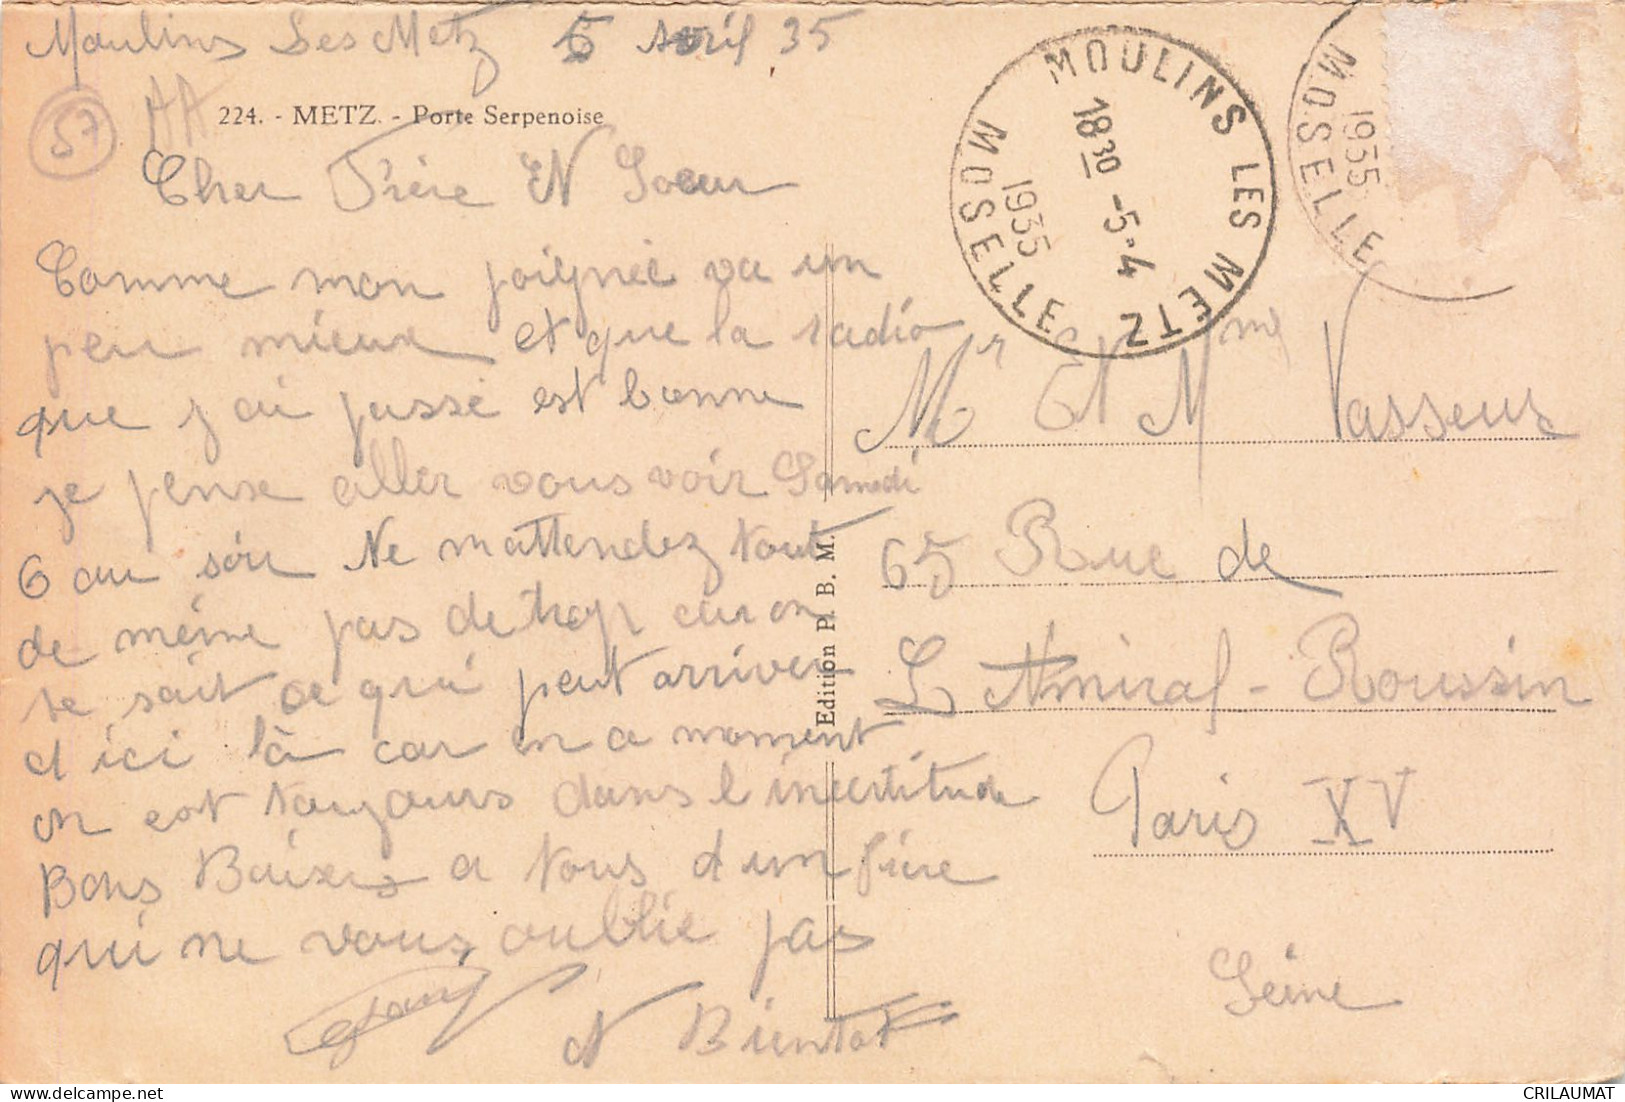 Moulins Les Metz 5 Avril 35
57
AA
224. - METZ. - Porte Serpenoise
Cher Frère Et Soeur
Comme mon poignée va un
peu mieux et que la radio
que j ai passé est bonne
je pense aller vous voir Samedi
6 au soir Ne m attendez tout
de même pas de trop car on
se sait ce qui peut arriver
d ici là car en a moment
on est toujours dans l incertitude
Bons Baisers a tous d un frère
qui ne vous oublie pas
A Bientot
Edition P. B. M.
MOULINS LES METZ
18 30 -5-4
1935
MOSELLE
1935
MOSELLE
Mr Et Mme Vasseur
65 Rue de
L Amiral - Roussin
Paris XV
Seine
CRILAUMAT